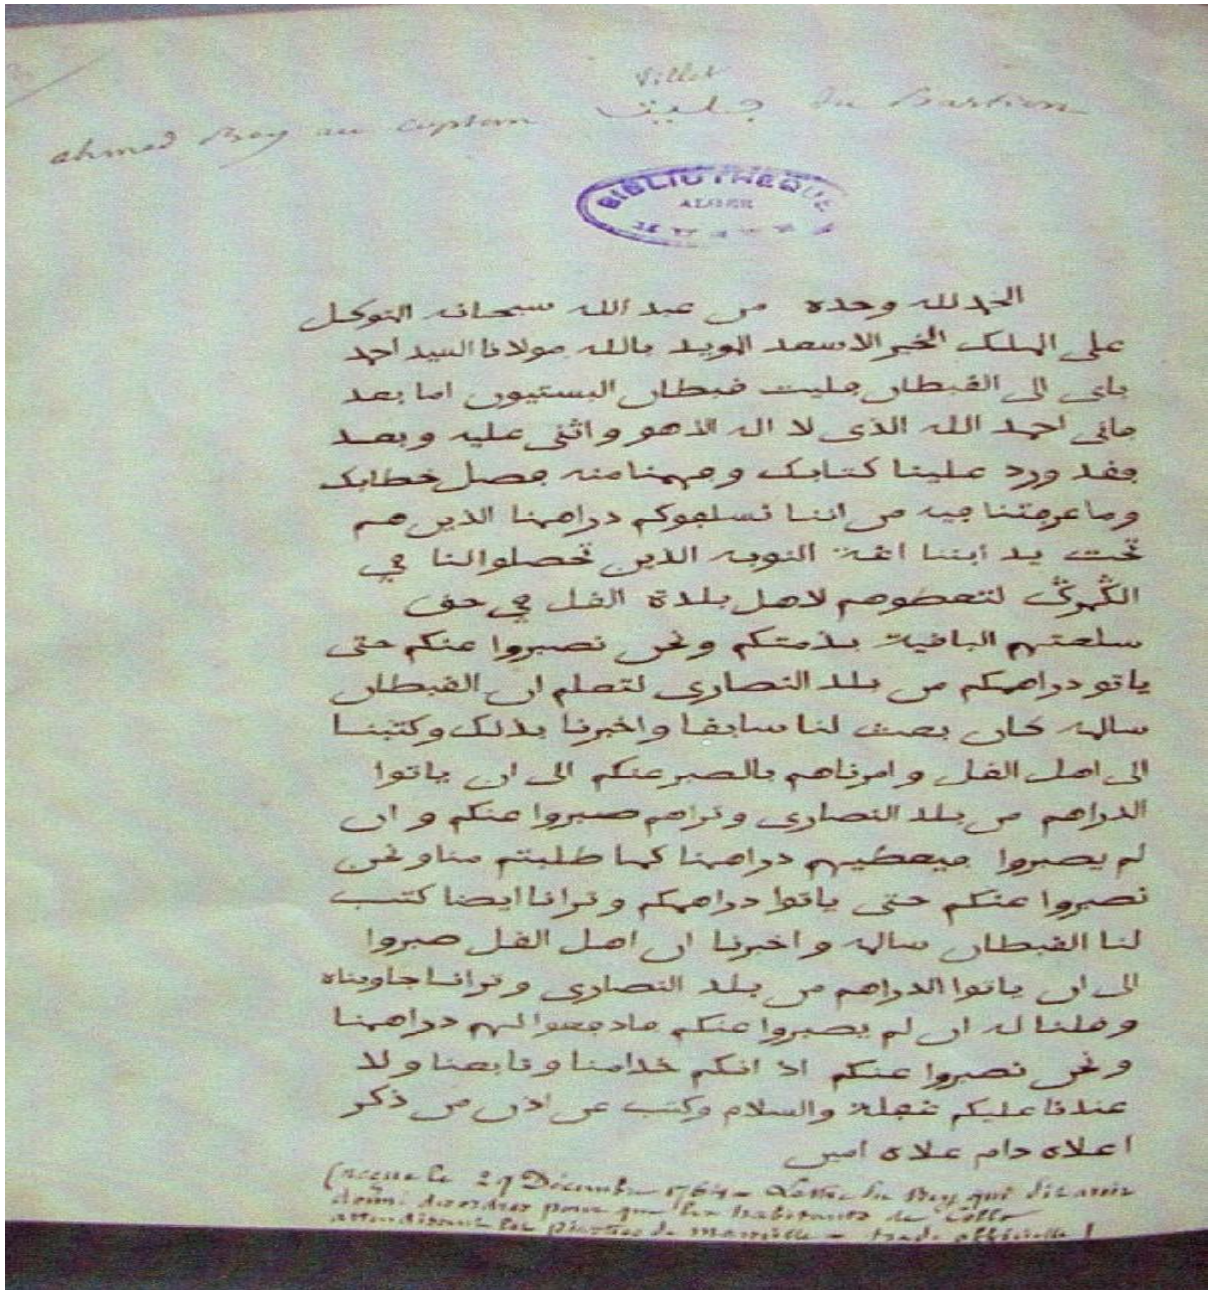 Villet
ahmed Bey au captem جليت du Bastion
BIBLIOTHEQUE
ALGER
الحمد لله وحده من عبد الله سبحانه المتوكل
على الملك الخبر الاسعد المويد بالله مولانا السيد احمد
باي الى القبطان جليت قبطان البستيون اما بعد
فاني احمد الله الذي لا اله الا هو واثني عليه وبعد
فقد ورد علينا كتابك وفهمنا منه فصل خطابك
وما عرفتنا فيه من اننا نسلفوكم دراهمنا الذين هم
تحت يد ابننا اغة النوبه الذين تحصلوا لنا في
الڭمرڭ لتعطوهم لاهل بلدة القل في حق
سلعتهم الباقية بذمتكم ونحن نصبروا عنكم حتى
ياتو دراهمكم من بلد النصارى لتعلم ان القبطان
ساله كان بعث لنا سابقا واخبرنا بذلك وكتبنا
الى اهل القل وامرناهم بالصبر عنكم الى ان ياتوا
الدراهم من بلد النصارى وتراهم صبروا عنكم وان
لم يصبروا فيعطيهم دراهمنا كما طلبتم منا ونحن
نصبروا عنكم حتى ياتوا دراهمكم وترانا ايضا كتب
لنا القبطان ساله واخبرنا ان اهل القل صبروا
الى ان ياتوا الدراهم من بلد النصارى وترانا جاوبناه
وقلنا له ان لم يصبروا عنكم فادفعوا لهم دراهمنا
ونحن نصبروا عنكم اذ انكم خدامنا وتابعنا ولا
عندنا عليكم غفلة والسلام وكتب عن اذن من ذكر
اعلاه دام علاه امين
(reçue le 29 Décembre 1764 - Lettre du Bey qui dit avoir
donné des ordres pour que les habitants de Collo
attendissent les piastres de Marseille - trad. officielle)